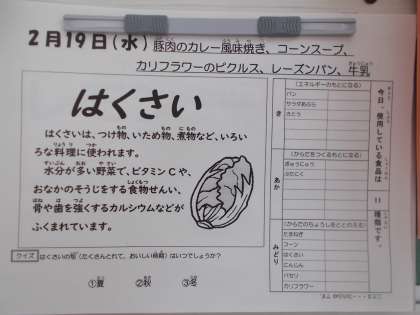 2月19日(水) 豚肉のカレー風味焼き、コーンスープ、
カリフラワーのピクルス、レーズンパン、牛乳
はくさい
はくさいは、つけ物、いため物、煮物など、いろい
ろな料理に使われます。
水分が多い野菜で、ビタミンCや、
おなかのそうじをする食物せんい、
骨や歯を強くするカルシウムなどが
ふくまれています。
クイズ はくさいの旬(たくさんとれて、おいしい時期)はいつでしょうか?
①夏 ②秋 ③冬
今日、使用している食品は 11 種類です。
き
(エネルギーのもとになる)
パン
サラダあぶら
さとう
あか
(からだをつくるもとになる)
ぎゅうにゅう
ぶたにく
みどり
(からだのちょうしをととのえる)
たまねぎ
コーン
はくさい
にんじん
パセリ
カリフラワー